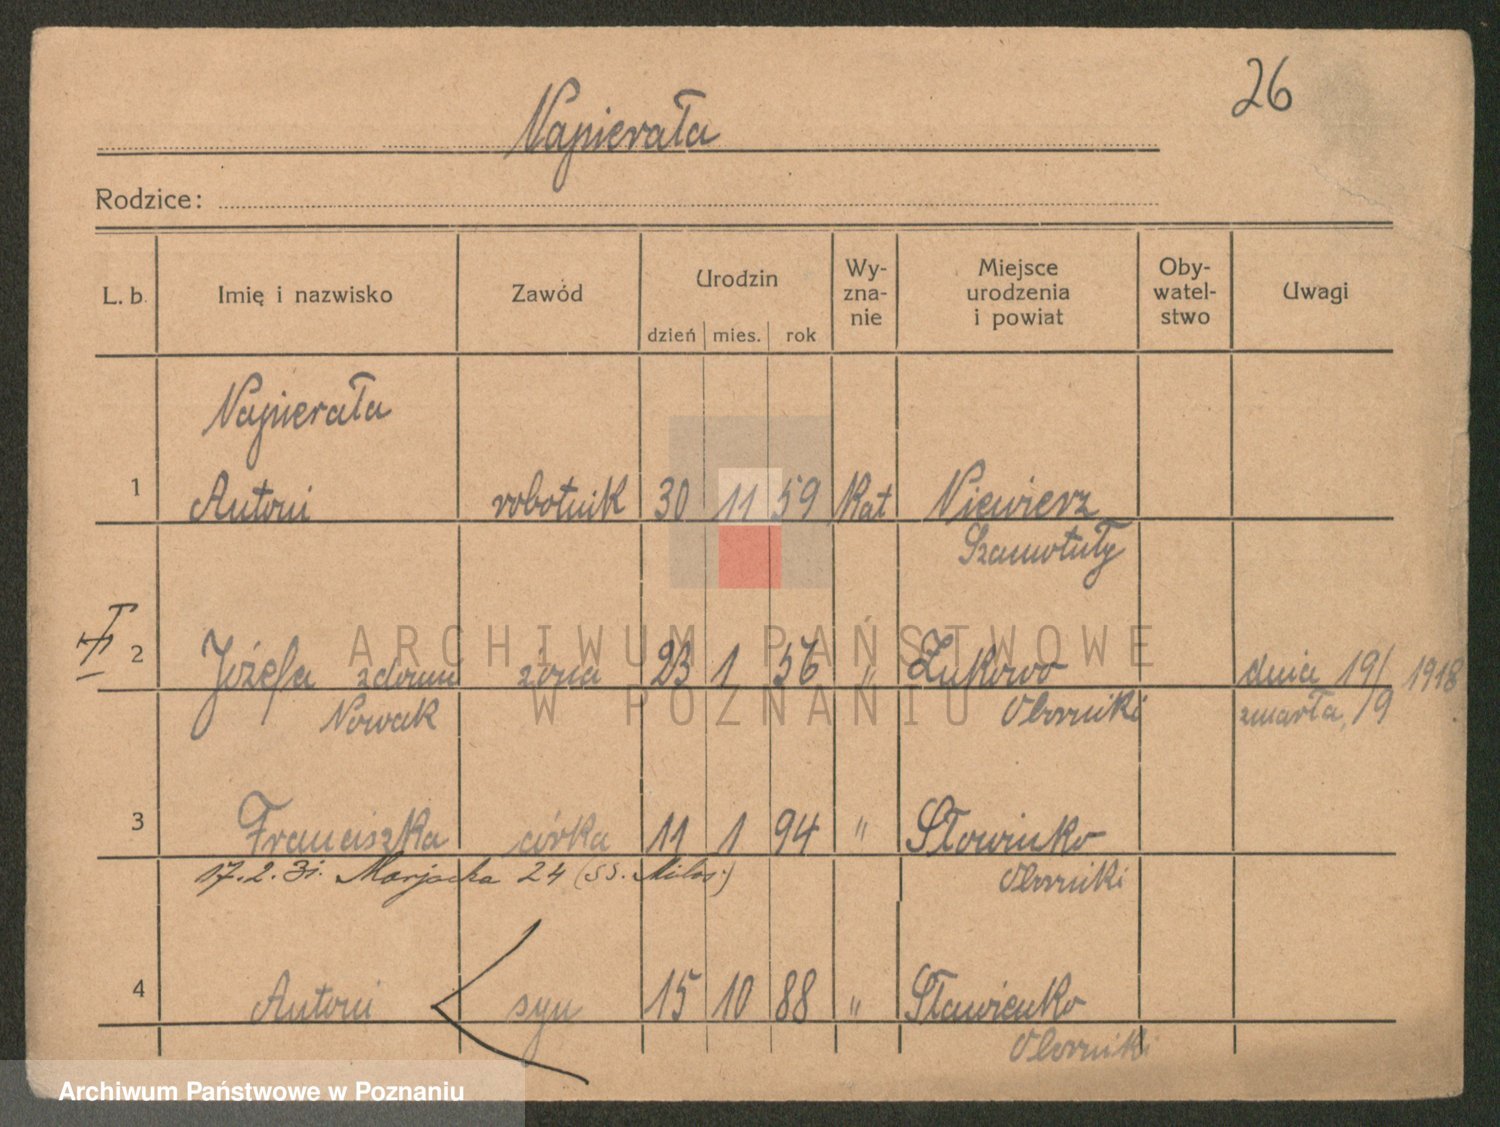 26
Napierała
Rodzice:
L. b. Imię i nazwisko Zawód Urodzin dzień mies. rok Wy-zna-nie Miejsce urodzenia i powiat Oby-watel-stwo Uwagi
Napierała
1 Antoni robotnik 30 11 59 Kat Niewierz
Szamotuły
2 Józefa zdomu żona 23 1 56 " Żukowo dnia 19/ 1918
Nowak Oborniki zmarła, /9
3 Franciszka córka 11 1 94 " Słowinko
17.2.31. Marjacka 24 (SS. Miłos.) Oborniki
4 Antoni syn 15 10 88 " Sławienko
Oborniki
ARCHIWUM PAŃSTWOWE
W POZNANIU
Archiwum Państwowe w Poznaniu